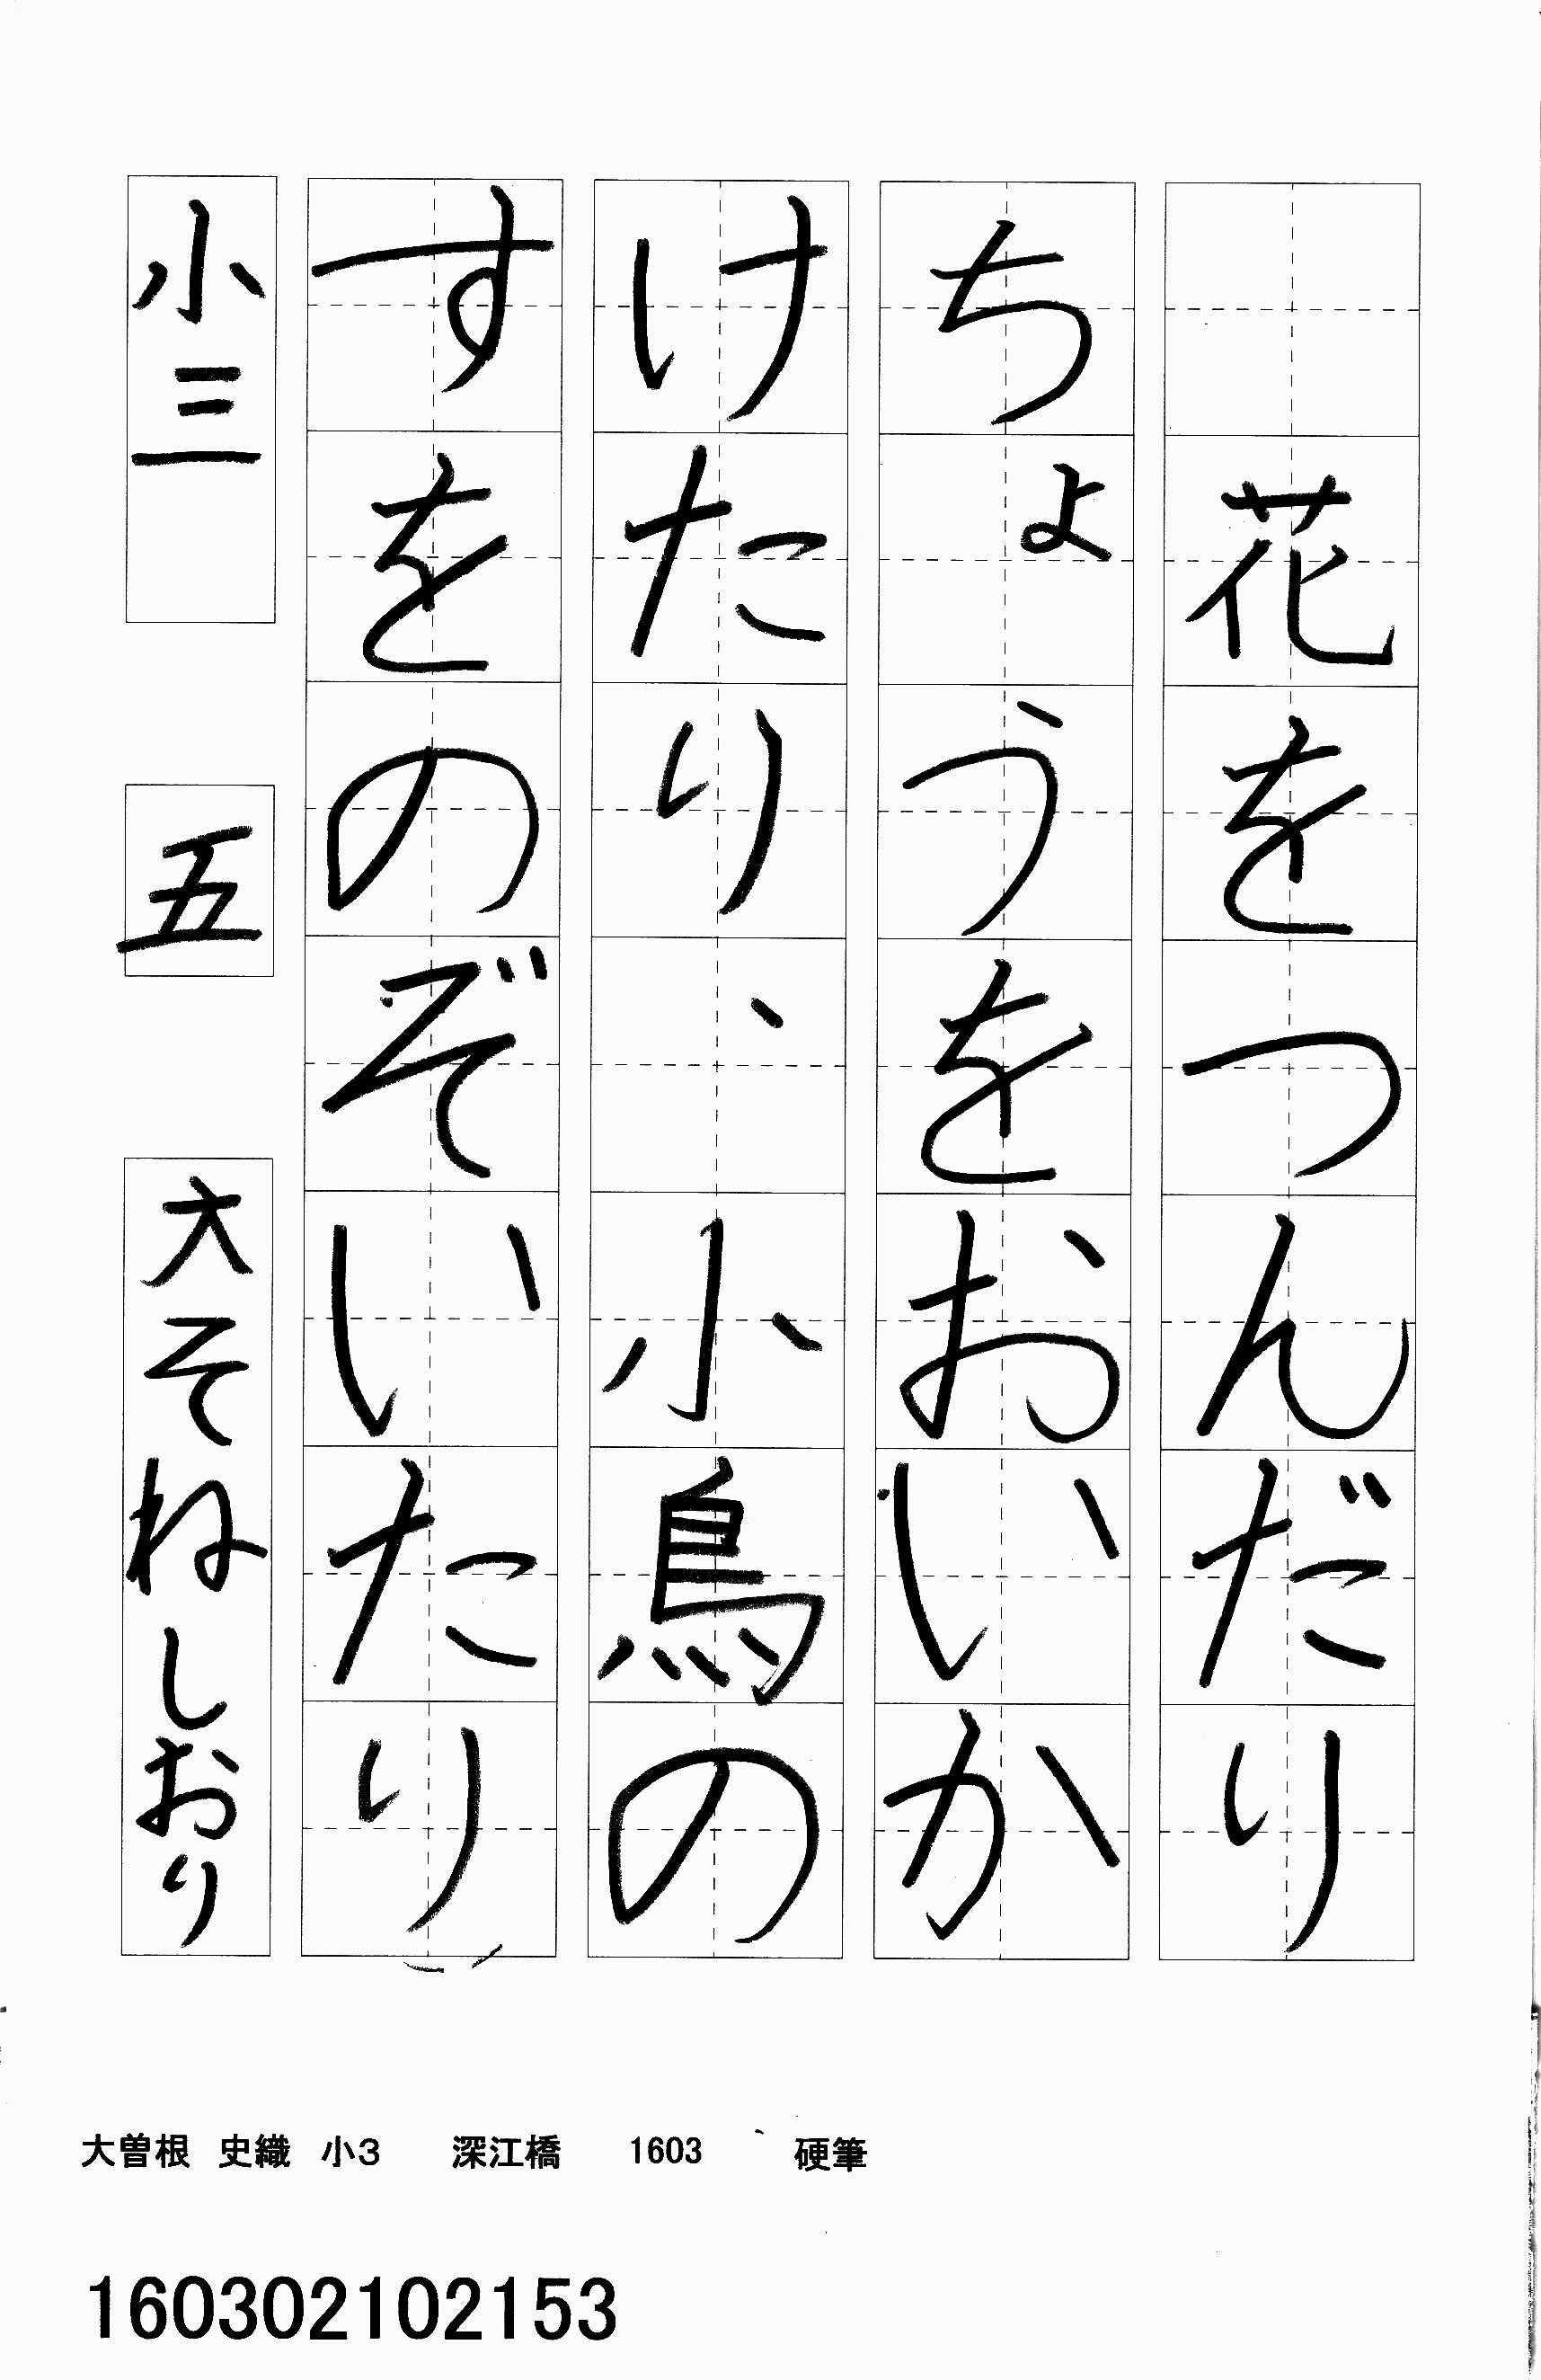 花をつんだり
ちょうをおいか
けたり、小鳥の
すをのぞいたり
小三 五 大そねしおり
大曽根 史織 小3 深江橋 1603 硬筆
160302102153